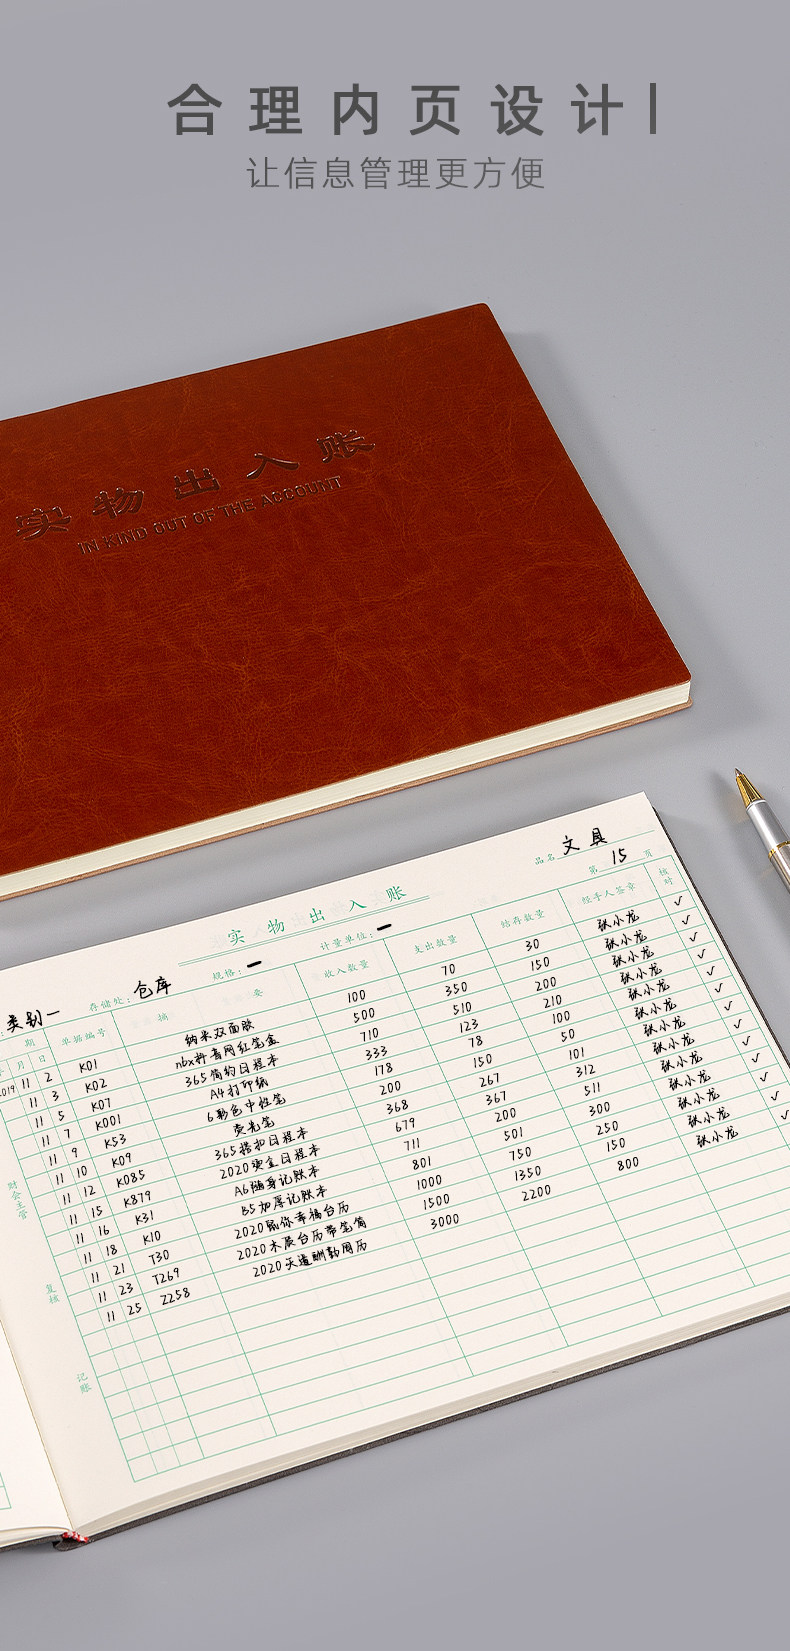 合理内页设计
让信息管理更方便
实物出入账
IN KIND OUT OF THE ACCOUNT
品名 文具
第 15 页
实物出入账
类别一 存储处：仓库 规格：一 计量单位：一
期 单据编号 摘要 收入数量 支出数量 结存数量 经手人签章 核对
月 日
2019 11 2 K01 纳米双面胶 100 70 30 张小龙 ✓
11 3 K02 nbx抖音网红笔盒 500 350 150 张小龙 ✓
11 5 K07 365简约日程本 710 510 200 张小龙 ✓
11 7 K001 A4打印纸 333 123 210 张小龙 ✓
11 9 K53 6彩色中性笔 178 78 100 张小龙 ✓
11 10 K09 荧光笔 200 150 50 张小龙 ✓
11 12 K085 365搭扣日程本 368 267 101 张小龙 ✓
11 15 K879 2020烫金日程本 679 367 312 张小龙 ✓
11 16 K31 A6随身记账本 711 200 511 张小龙 ✓
11 18 K10 B5加厚记账本 801 501 300 张小龙
11 21 T30 2020鼠你幸福台历 1000 750 250
11 23 T269 2020木质台历带笔筒 1500 1350 150
11 25 Z258 2020天道酬勤周历 3000 2200 800
财会主管
复核
记账